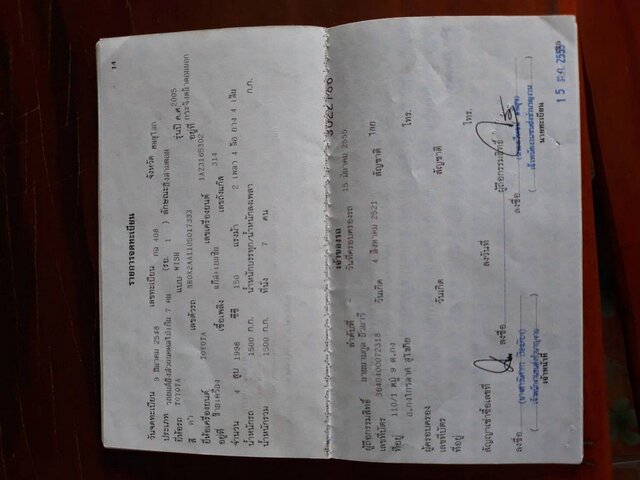 14
รายการจดทะเบียน
วันจดทะเบียน 9 มีนาคม 2548 เลขทะเบียน กง 408 จังหวัด พิษณุโลก
ประเภท รถยนต์นั่งส่วนบุคคลไม่เกิน 7 คน (รย. 1 ) ลักษณะ
ยี่ห้อรถ TOYOTA แบบ WISH รุ่นปี ค.ศ. 2005
สี ดำ เลขตัวรถ อยู่ที่
ยี่ห้อเครื่องยนต์ TOYOTA เลขเครื่องยนต์ 1AZ3165302
อยู่ที่ เชื้อเพลิง เลขถังแก๊ส 314
จำนวน 4 สูบ 1998 ซีซี 150 แรงม้า 2 เพลา 4 ล้อ ยาง 4 เส้น
น้ำหนักรถ 1500 ก.ก. น้ำหนักบรรทุก/น้ำหนักลงเพลา ก.ก.
น้ำหนักรวม 1500 ก.ก. ที่นั่ง 7 คน
3022766
เจ้าของรถ
ลำดับที่ 2 วันที่ครอบครองรถ 15 มีนาคม 2555
ผู้ถือกรรมสิทธิ์
เลขที่บัตร 3640400072318 วันเกิด 4 สิงหาคม 2521 สัญชาติ ไทย
ที่อยู่ 110/1 หมู่ 9 ต.กง โทร.
อ.กงไกรลาศ สุโขทัย
ผู้ครอบครอง
เลขที่บัตร วันเกิด สัญชาติ
ที่อยู่ โทร.
สัญญาเช่าซื้อเลขที่ ลงวันที่ ผู้ถือกรรมสิทธิ์
ลงชื่อ ลงชื่อ
เจ้าหน้าที่ นายทะเบียน
15 มี.ค. 2555